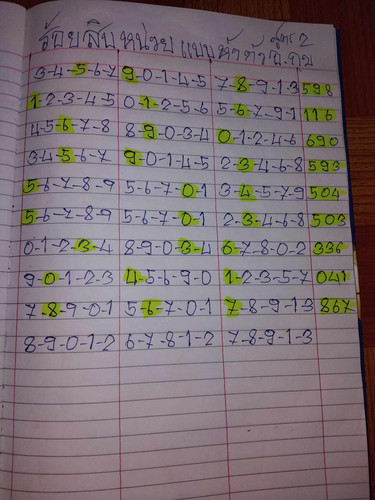 สูตร 2
ร้อยสิบหน่วย แบบห้าตัว
3-4-5-6-7 9-0-1-4-5 7-8-9-1-3 598
1-2-3-4-5 0-1-2-5-6 5-6-7-9-1 116
4-5-6-7-8 8-9-0-3-4 0-1-2-4-6 690
3-4-5-6-7 9-0-1-4-5 2-3-4-6-8 593
5-6-7-8-9 5-6-7-0-1 3-4-5-7-9 504
5-6-7-8-9 5-6-7-0-1 2-3-4-6-8 503
0-1-2-3-4 8-9-0-3-4 6-7-8-0-2 336
9-0-1-2-3 4-5-6-9-0 1-2-3-5-7 041
7-8-9-0-1 5-6-7-0-1 7-8-9-1-3 867
8-9-0-1-2 6-7-8-1-2 7-8-9-1-3